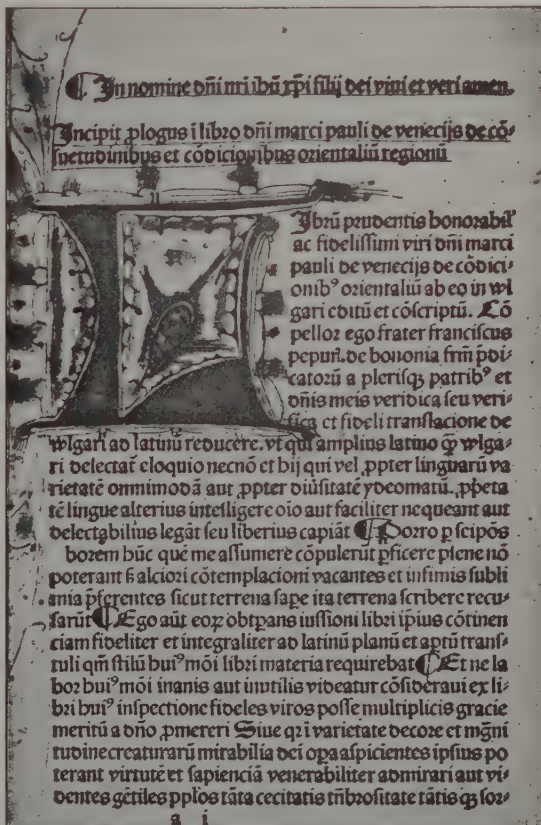 In nomine dñi nri ihũ xp̃i filij dei viui et veri amen.
Incipit plogus ĩ libro dñi marci pauli de venecijs de cõ-
suetudinibus et cõdicionibus orientaliũ regionũ
Ibrũ prudentis honorabil'
ac fidelissimi viri dñi marci
pauli de venecijs de cõdici-
onibꝰ orientaliũ ab eo in wl
gari editũ et cõscriptũ. Cõ
pellor ego frater franciscus
pepur̃. de bononia frm̃ p̃di-
catorũ a plerisqꝫ patribꝰ et
dñis meis veridica seu veri-
fica et fideli translacione de
wlgari ad latinũ reducere. vt qui amplius latino qꝫ wlga-
ri delectãt eloquio necnõ et hij qui vel ꝓpter linguarũ va
rietatẽ omnimodã aut ꝓpter diũsitatẽ ydeomatũ. ꝓp̃eta
tẽ lingue alterius intelligere oĩo aut faciliter nequeant aut
delectabilius legãt seu liberius capiãt ¶ Porro p seipõs
borem hũc quẽ me assumere cõpulerũt ꝑficere plene nõ
poterant s̃ alciori cõtemplacioni vacantes et infimis subli
mia p̃ferentes sicut terrena sape ita terrena scribere recu-
sarũt ¶ Ego aũt eoꝝ obtꝑans iussioni libri ip̃ius cõtinen
ciam fideliter et integraliter ad latinũ planũ et aptũ trans-
tuli qm̃ stilũ huiꝰmõi libri materia requirebat ¶ Et ne la
bor huiꝰmõi inanis aut inutilis videatur cõsideraui ex li-
bri huiꝰ inspectione fideles viros posse multiplicis gracie
meritũ a dño ꝓmereri Siue qꝛ ĩ varietate decore et mg̃ni
tudine creaturarũ mirabilia dei oꝑa aspicientes ipsius po
terant virtutẽ et sapienciã venerabiliter admirari aut vi-
dentes gẽtiles pplos tãta cecitatis tñbrositate tãtis qꝫ sor-
a i